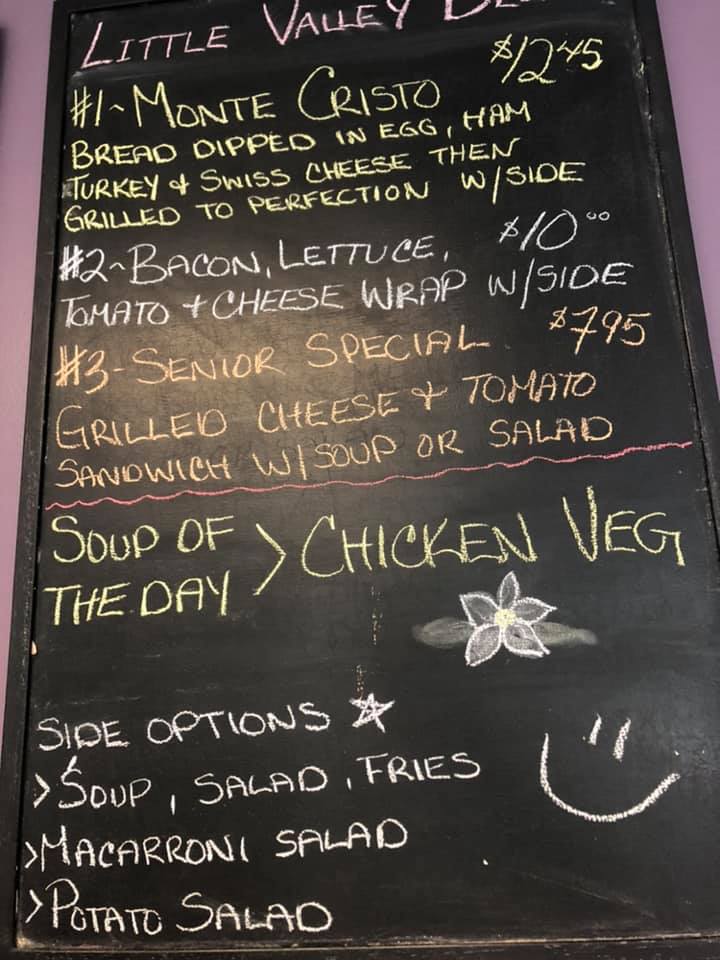 LITTLE VALLEY
$12.45
#1~MONTE CRISTO
BREAD DIPPED IN EGG, HAM
TURKEY & SWISS CHEESE THEN
GRILLED TO PERFECTION W/SIDE
#2~BACON, LETTUCE, $10.00
TOMATO + CHEESE WRAP W/SIDE
#3-SENIOR SPECIAL $7.95
GRILLED CHEESE & TOMATO
SANDWICH W/SOUP OR SALAD
SOUP OF THE DAY > CHICKEN VEG
SIDE OPTIONS
>SOUP, SALAD, FRIES
>MACARRONI SALAD
>POTATO SALAD